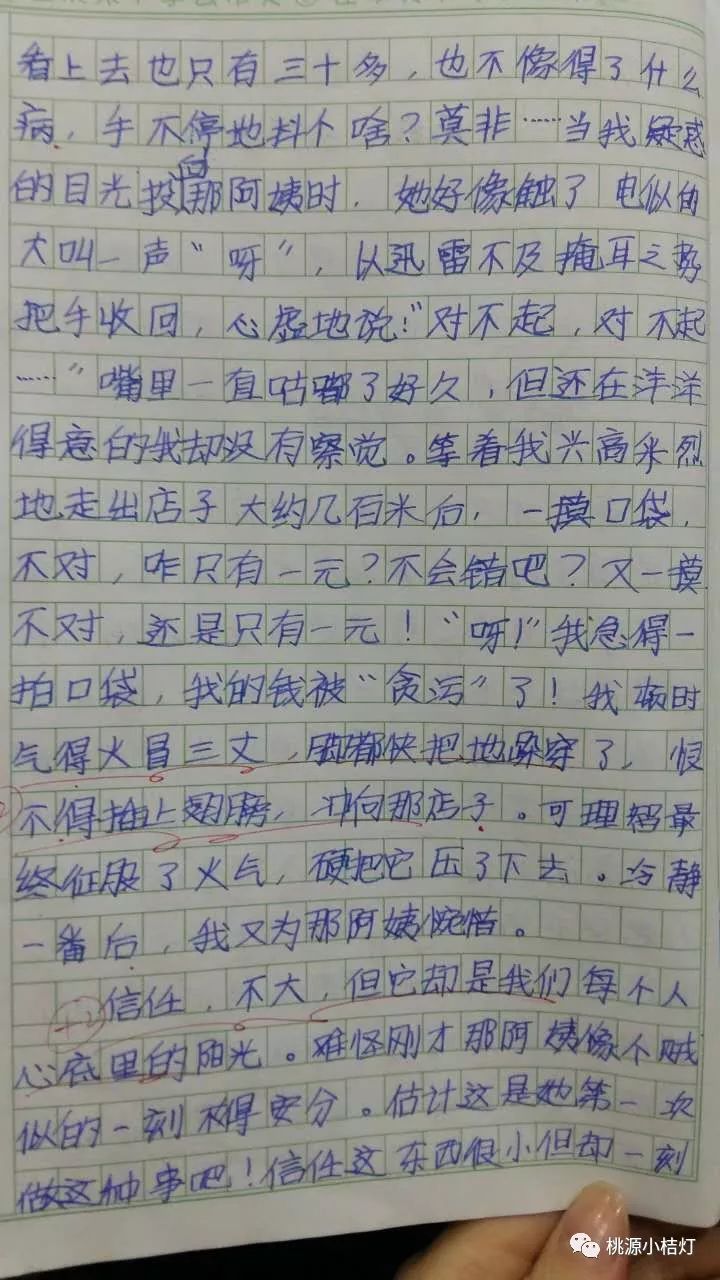 看上去也只有三十多，也不像得了什么
病，手不停地抖个啥？莫非……当我疑惑
的目光投向那阿姨时，她好像触了电似的
大叫一声“呀”，以迅雷不及掩耳之势
把手收回，心虚地说：“对不起，对不起
……”嘴里一直咕嘟了好久，但还在洋洋
得意的我却没有察觉。等着我兴高采烈
地走出店子大约几百米后，一摸口袋，
不对，咋只有一元？不会错吧？又一摸
不对，还是只有一元！“呀！”我急得一
拍口袋，我的钱被“贪污”了！我顿时
气得火冒三丈，脚都快把地跺穿了，恨
不得插上翅膀，冲向那店子。可理智最
终征服了火气，硬把它压了下去。冷静
一番后，我又为那阿姨惋惜。
信任，不大，但它却是我们每个人
心底里的阳光。难怪刚才那阿姨像个贼
似的一刻不得安分。估计这是她第一次
做这种事吧！信任这东西很小但却一刻
桃源小桔灯